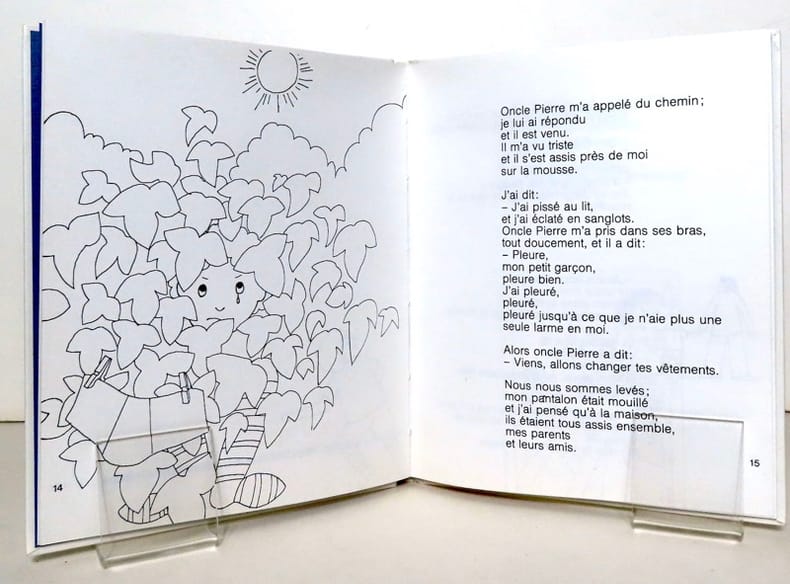 14
Oncle Pierre m'a appelé du chemin;
je lui ai répondu
et il est venu.
Il m'a vu triste
et il s'est assis près de moi
sur la mousse.
J'ai dit:
– J'ai pissé au lit,
et j'ai éclaté en sanglots.
Oncle Pierre m'a pris dans ses bras,
tout doucement, et il a dit:
– Pleure,
mon petit garçon,
pleure bien.
J'ai pleuré,
pleuré,
pleuré jusqu'à ce que je n'aie plus une
seule larme en moi.
Alors oncle Pierre a dit:
– Viens, allons changer tes vêtements.
Nous nous sommes levés;
mon pantalon était mouillé
et j'ai pensé qu'à la maison,
ils étaient tous assis ensemble,
mes parents
et leurs amis.
15